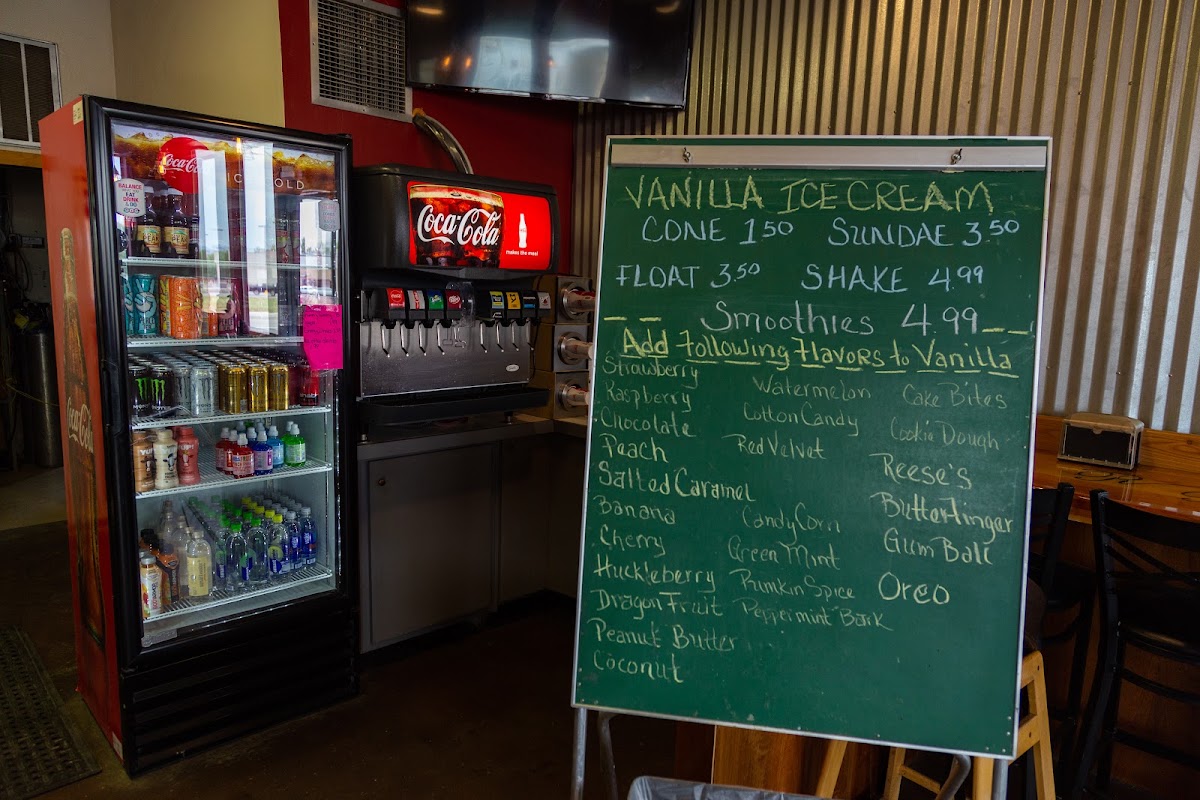 VANILLA ICE CREAM
CONE 1.50 SUNDAE 3.50
FLOAT 3.50 SHAKE 4.99
Smoothies 4.99
Add Following Flavors to Vanilla
Strawberry
Raspberry
Chocolate
Peach
Salted Caramel
Banana
Cherry
Huckleberry
Dragon Fruit
Peanut Butter
Coconut
Watermelon
Cotton Candy
Red Velvet
Candy Corn
Green Mint
Pumkin Spice
Peppermint Bark
Cake Bites
Cookie Dough
Reese's
Butterfinger
Gum Ball
Oreo
Coca-Cola
makes the meal
Coca-Cola
BALANCE
WHAT YOU
EAT
DRINK
& DO
Coca-Cola